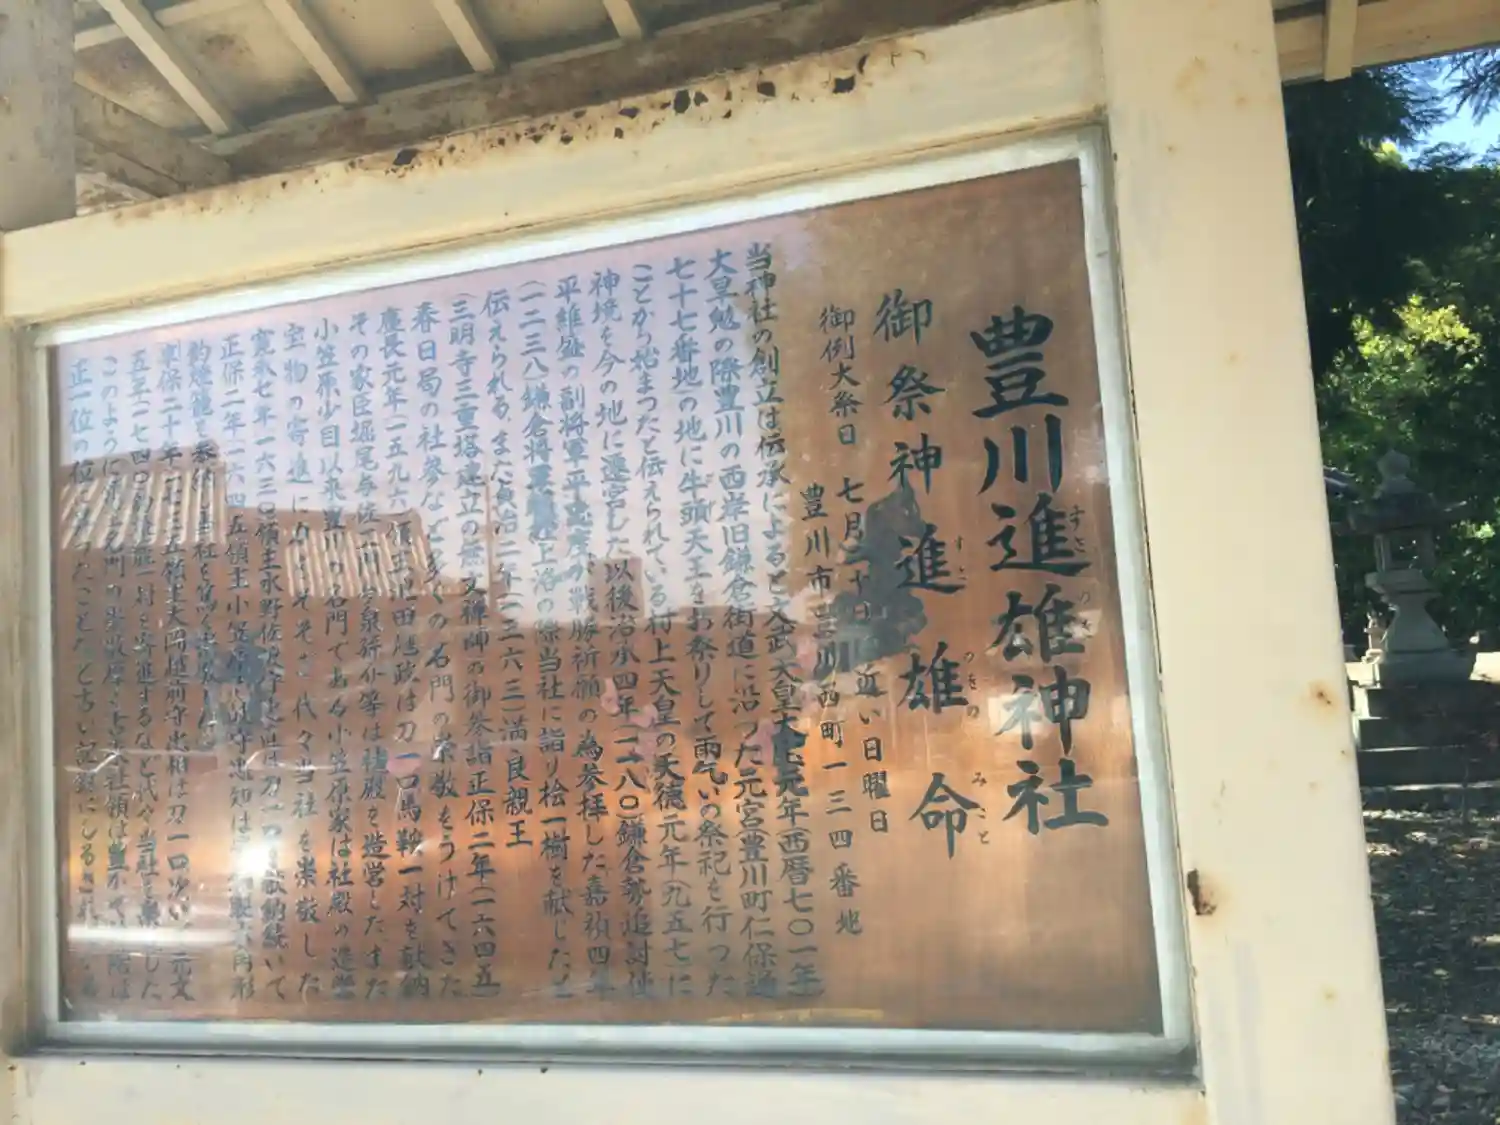 豊川進雄神社
すさのを
御祭神 進雄命
すさ のをの みこと
御例大祭日 七月二十日 近い日曜日
豊川市豊川西町一三四番地
当神社の創立は伝承によると文武天皇大宝元年(西暦七〇一年)
大旱勉の際豊川の西岸旧鎌倉街道に沿った元宮(豊川町仁保通
七十七番地の地に牛頭天王をお祭りして雨乞いの祭祀を行った
ことから始まったと伝えられている村上天皇の天徳元年(九五七)に
神境を今の地に遷宮した以後治承四年(一一八〇)鎌倉勢追討使
平維盛の副将軍平忠度が戦勝祈願の為参拝した嘉禎四年
(一二三八)鎌倉将軍 上洛の際当社に詣り桧一樹を献した、と
伝えられる、また貞治二年(一三六、三)満良親王
(三明寺三重塔建立の無文禅師の御参詣正保二年(一六四五)
春日局の社参など多くの名門の崇敬をうけてきた
慶長元年(一五九六)領主池田輝政は刀一口馬鞍一対を献納
その家臣堀尾与佐 等は社殿を造営したまた
小笠原少目以来豊川の名門である小笠原家は社殿の造営
宝物の寄進に力をそそぎ代々当社を崇敬した
寛永七年(一六三〇)領主水野佐渡守忠直は刀一口を献納続いて
正保二年(一六四五)領主小笠原壱岐守忠知は 製六角形
釣燈籠を奉納し当社を篤く崇敬した
享保二十年(一七三五)領主大岡越前守忠相は刀一口次いで元文
五年(一七四〇) 一対を寄進するなど代々当社を
このように 名門の崇敬厚く 社領は豊かで 階は
正一位の位 ったことなど古い記録にしるされ